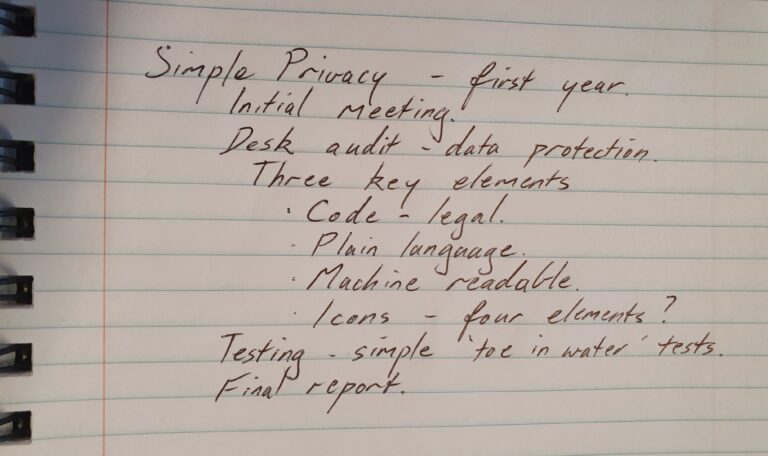 Simple Privacy - first year.
Initial Meeting.
Desk audit - data protection.
Three key elements
· Code - legal.
· Plain language.
· Machine readable.
· Icons - four elements?
Testing - simple 'toe in water' tests.
Final report.